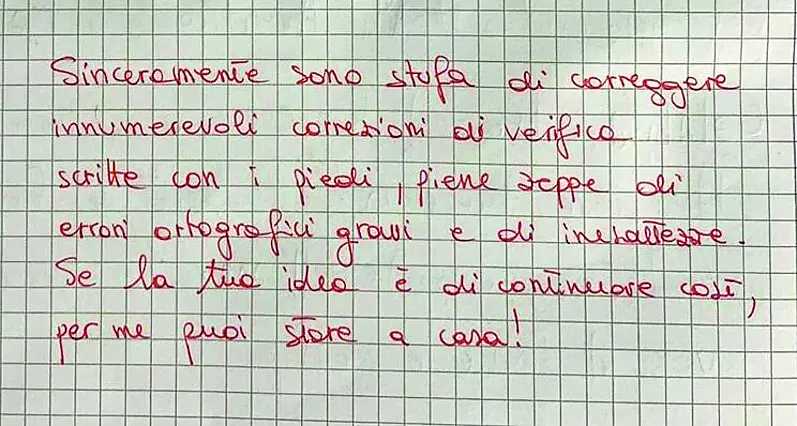 Sinceramente sono stufa di correggere
innumerevoli correzioni di verifica
scritte con i piedi, piene zeppe di
errori ortografici gravi e di inesattezze.
Se la tua idea è di continuare così,
per me puoi stare a casa!